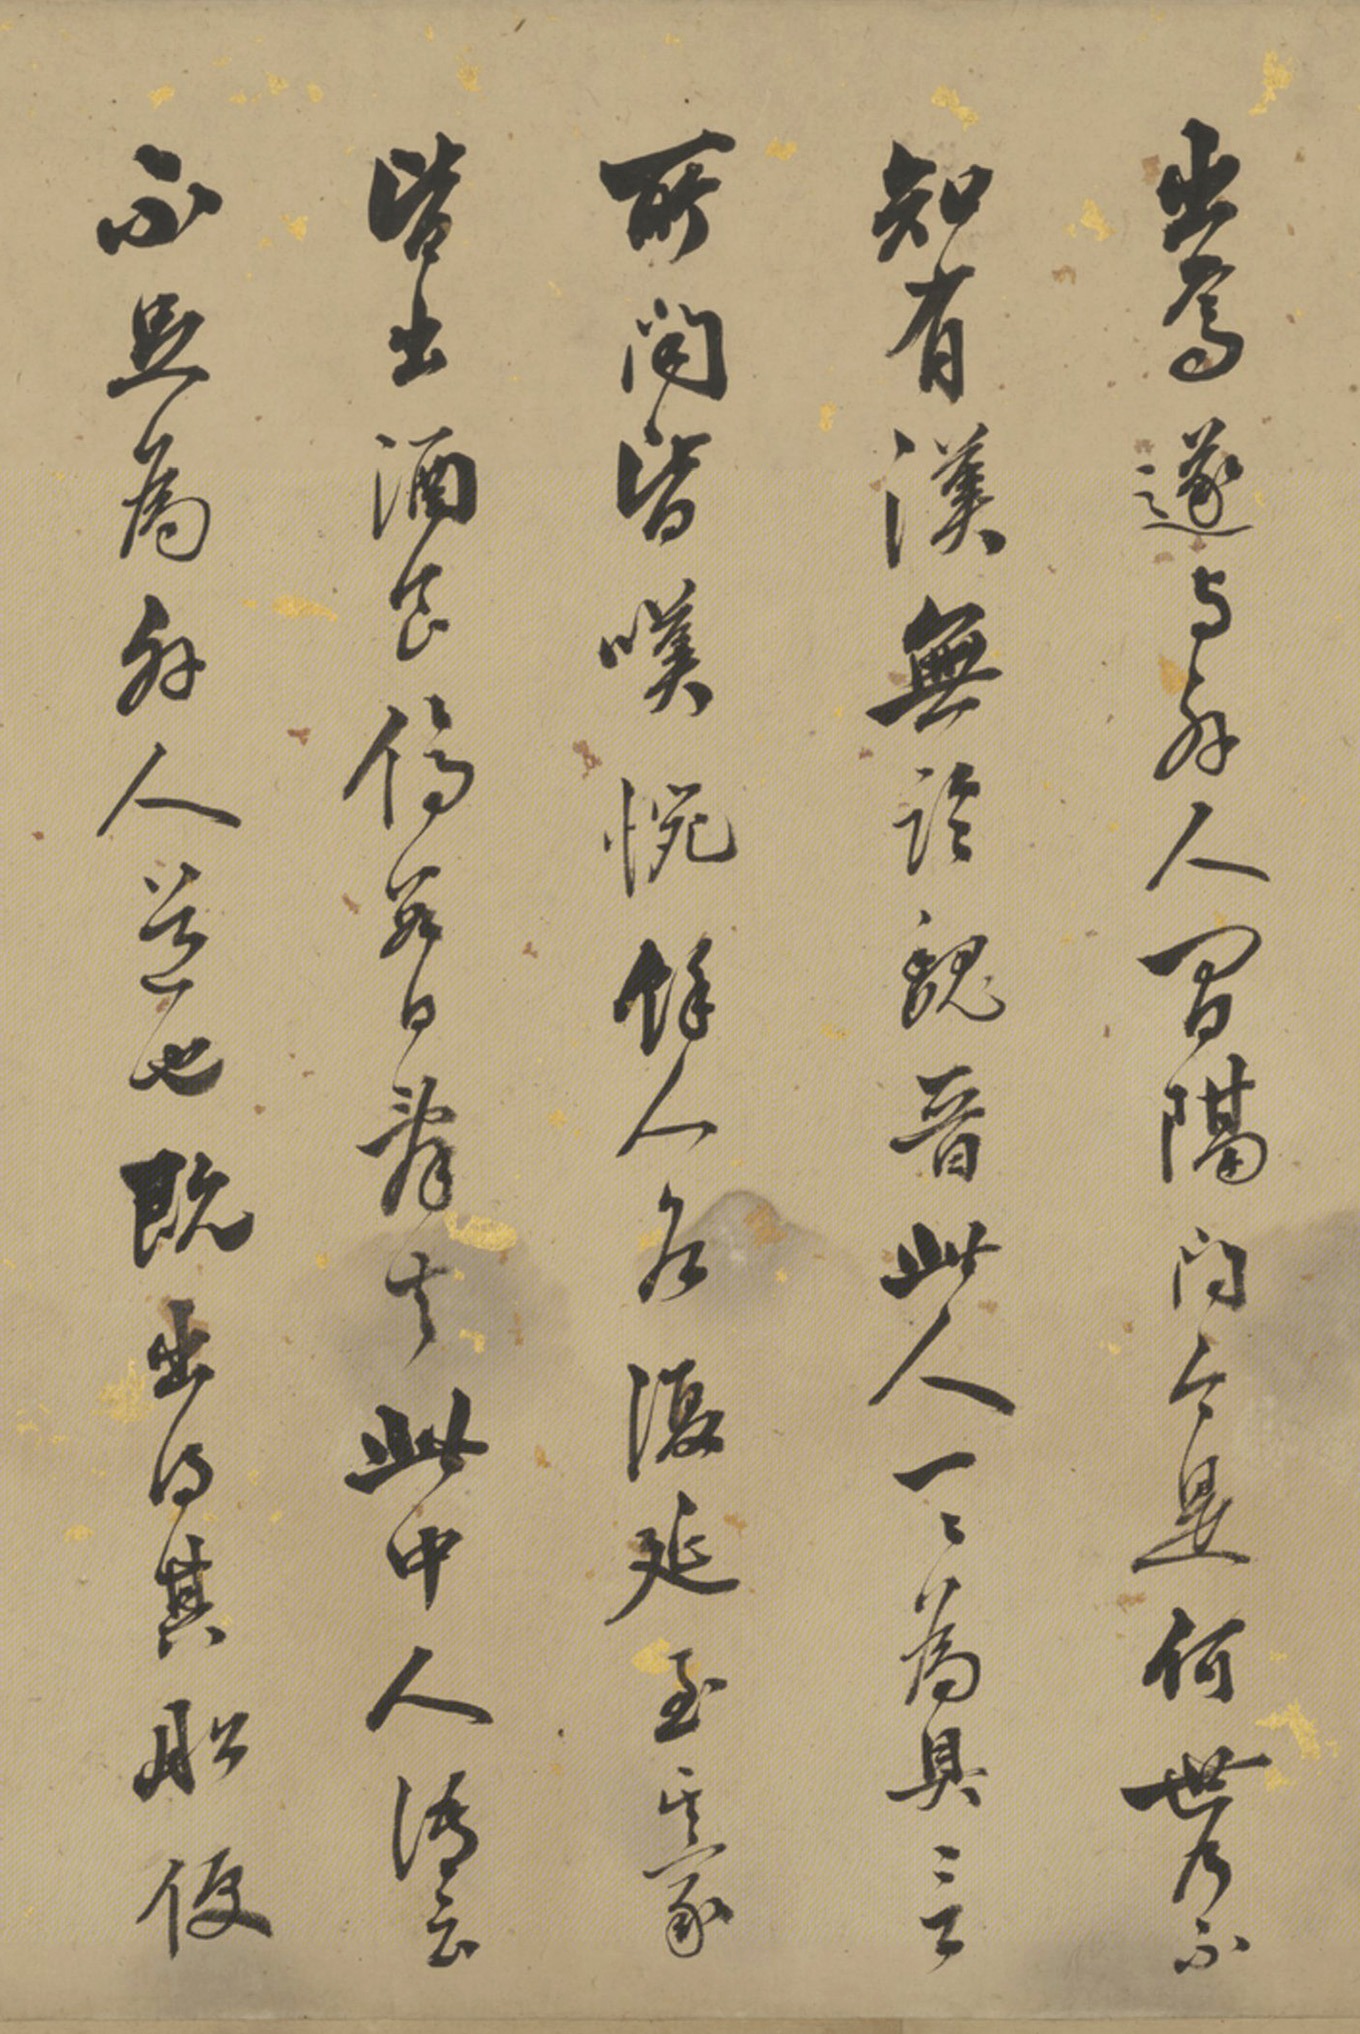 出焉遂与外人間隔問今是何世乃不
知有漢無論魏晉此人一〻為具言
所聞皆嘆惋餘人各復延至其家
皆出酒食停數日辭去此中人語云
不足為外人道也既出得其船便